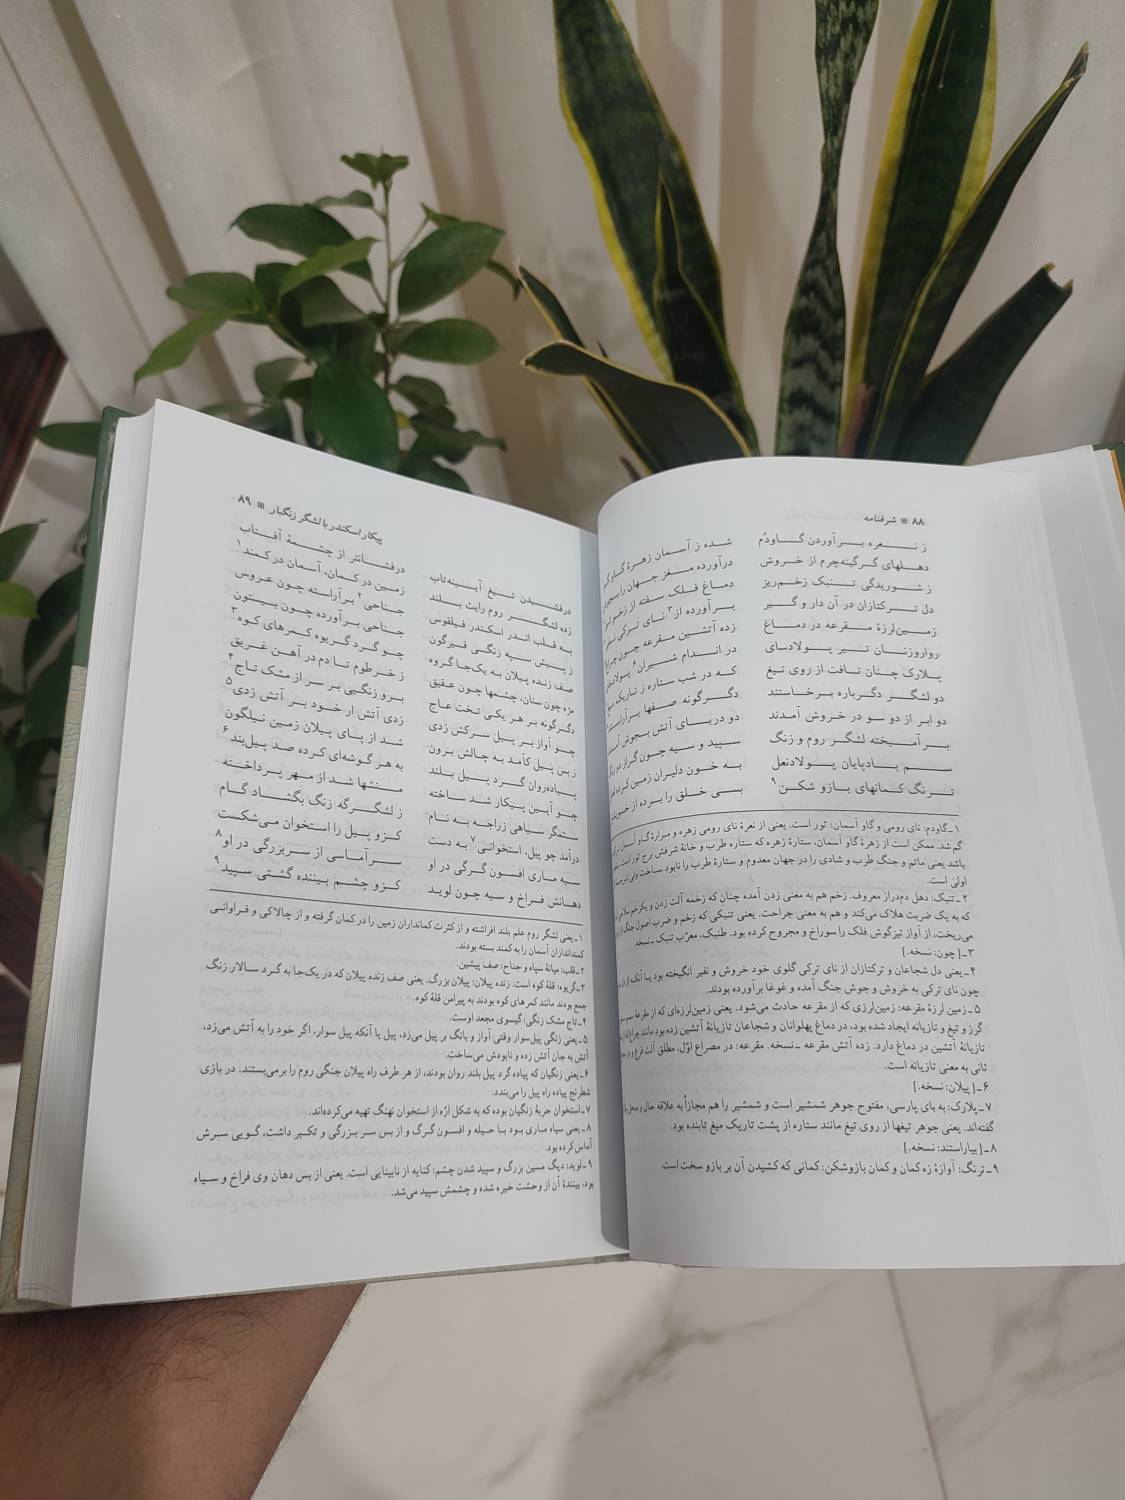 ۸۸ شرفنامه
ز نعره برآوردن گاودُم شده ز آسمان زهرهٔ گاو گم
دهلهای گرگینه‌چرم از خروش درآورده مغز جهان را بجوش
ز شوریدگی تنبک زخم‌ریز دماغ فلک سفته از زخم
دل ترکتازان در آن دار و گیر برآورده از۳ نای ترکی
زمین‌لرزهٔ مقرعه در دماغ زده آتشین مقرعه چون
روارو‌زنان تیر پولادسای در اندام شیران۶
پلارک چنان تافت از روی تیغ که در شب ستاره ز تاریک میغ
دو لشگر دگرباره برخاستند دگرگونه صفها
دو ابر از دو سو در خروش آمدند دو دریای آتش بجوش آمدند
برآمیخته لشگر روم و زنگ سپید و سیه چون گراز دورنگ
سم بادپایان پولادنعل به خون دلیران زمین کرده لعل
ترنگ کمانهای بازو شکن۹ بسی خلق را برده از خویشتن
۱ـ گاودم: نای رومی و گاو آسمان: ثور است. یعنی از نعرهٔ نای رومی زهره و مرارهٔ گاو آسمان
گم شد. ممکن است از زهرهٔ گاو آسمان، ستارهٔ زهره که ستاره طرب و خانهٔ شرفش برج ثور است
باشد یعنی ماتم و جنگ طرب و شادی را در جهان معدوم و ستارهٔ طرب را نابود ساخت ولی
اولیٰ است.
۲ـ تنبک: دهل دم‌دراز معروف. زخم هم به معنی زدن آمده چنان که زخمه آلت زدن و یکزخم
که به یک ضربت هلاک می‌کند و هم به معنی جراحت. یعنی تنبکی که زخم و ضرب اصول جنگ از
می‌ریخت، از آواز تیزگوش فلک را سوراخ و مجروح کرده بود. طنبک، معرّب تنبک ـ نسخه.
۳ـ [چون: نسخه.]
۴ـ یعنی دل شجاعان و ترکتازان از نای ترکی گلوی خود خروش و نفیر انگیخته بود یا آنک از
چون نای ترکی به خروش و جوش جنگ آمده و غوغا برآورده بودند.
۵ـ زمین لرزهٔ مقرعه: زمین‌لرزی که از مقرعه حادث می‌شود. یعنی زمین‌لرزه‌ای که از مقرعهٔ
گرز و تیغ و تازیانه ایجاد شده بود، در دماغ پهلوانان و شجاعان تازیانهٔ آتشین زده بود مانند چراغ که
تازیانهٔ آتشین در دماغ دارد. زده آتش مقرعه ـ نسخه. مقرعه: در مصراع اوّل، مطلق آلت قرع و در
ثانی به معنی تازیانه است.
۶ـ [پیلان: نسخه.]
۷ـ پلارک: به بای پارسی، مفتوح جوهر شمشیر است و شمشیر را هم مجازاً به علاقه حال و محل
گفته‌اند. یعنی جوهر تیغها از روی تیغ مانند ستاره از پشت تاریک میغ تابنده بود.
۸ـ [بیاراستند: نسخه.]
۹ـ ترنگ: آوازهٔ زه کمان و کمان بازوشکن: کمانی که کشیدن آن بر بازو سخت است.
پیکار اسکندر با لشگر زنگبار ۸۹
درفشیدن تیغ آیینه‌تاب درفشانتر از چشمهٔ آفتاب
زده لشگر روم رایت بلند زمین در کمان، آسمان در کمند۱
به قلب اندر اسکندر فیلقوس جناحی۲ برآراسته چون عروس
ز پیش سپه زنگی قیرگون جناحی برآورده چون بیستون
صف زنده پیلان به یک‌جا گروه چو گرد گریوه کمرهای کوه۳
مژه چون سنان، چشمها چون عقیق ز خرطوم تا دم در آهن غریق
دگرگونه بر هر یکی تخت عاج برو زنگیی بر سر از مشک تاج۴
چو آواز بر پیل سرکش زدی زدی آتش ار خود بر آتش زدی۵
ز بس پیل کامد به چالش برون شد از پای پیلان زمین نیلگون
پیاده‌روان گرد پیل بلند به هر گوشه‌ای کرده صد پیل‌بند۶
چو آیین پیکار شد ساخته منشها شد از مهر پرداخته
ستمگر سیاهی زراجه به نام ز لشگرگه زنگ بگشاد گام
درآمد چو پیل، استخوانی۷ به دست کزو پیل را استخوان می‌شکست
سیه ماری افسون گرگی در او سرآماسی از سربزرگی در او۸
دهانش فراخ و سیه چون لوید کزو چشم بیننده گشتی سپید۹
۱ـ یعنی لشگر روم علم بلند افراشته و از کثرت کمانداران زمین را در کمان گرفته و از چالاکی و فراوانی
کمنداندازان آسمان را به کمند بسته بودند.
۲ـ قلب: میانهٔ سپاه و جناح: صف پیشین.
۳ـ گریوه: قلهٔ کوه است. زنده پیلان: پیلان بزرگ. یعنی صف زنده پیلان که در یک‌جا به گرد سالار زنگ
جمع بودند مانند کمرهای کوه بودند به پیرامن قلهٔ کوه.
۴ـ تاج مشک زنگی: گیسوی مجعد اوست.
۵ـ یعنی زنگی پیل‌سوار وقتی آواز و بانگ بر پیل می‌زد، پیل یا آنکه پیل سوار، اگر خود را به آتش می‌زد،
آتش به جان آتش زده و نابودش می‌ساخت.
۶ـ یعنی زنگیان که پیاده گرد پیل بلند روان بودند، از هر طرف راه پیلان جنگی روم را برمی‌بستند. در بازی
شطرنج پیاده راه پیل را می‌بندد.
۷ـ استخوان حربهٔ زنگیان بوده که به شکل ارّه از استخوان نهنگ تهیه می‌کرده‌اند.
۸ـ یعنی سیاه ماری بود با حیله و افسون گرگ و از بس سر بزرگی و تکبر داشت، گویی سرش
آماس کرده بود.
۹ـ لوید: دیگ مسین بزرگ و سپید شدن چشم: کنایه از نابینایی است. یعنی از بس دهان وی فراخ و سیاه
بود، بینندهٔ آن از وحشت خیره شده و چشمش سپید می‌شد.